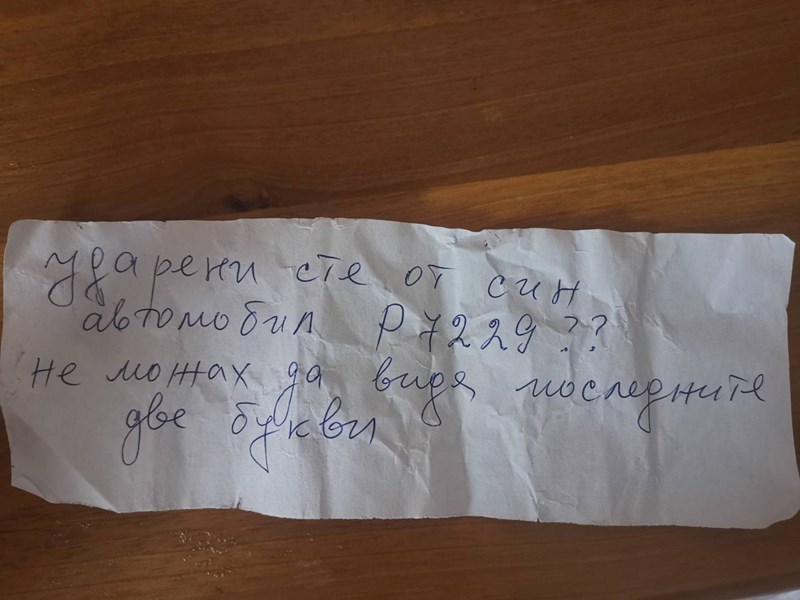 ударени сте от син
автомобил Р7229??
не можах да видя последните
две букви